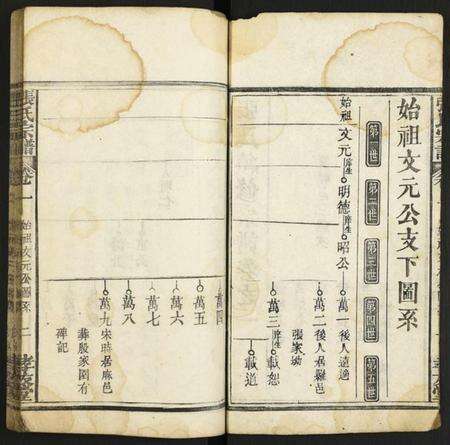 始祖文元公支下圖系
第一世
第二世
第三世
第四世
第五世
始祖文元
明德
昭公
萬一後人遠適
萬二後人居羅邑
張家塘
萬三
載恕
載道
萬四
萬五
萬六
萬七
萬八
萬九宋時居麻邑
彝殷家園有
碑記
張氏宗譜
卷一
始祖文元公圖系
二
孝友堂